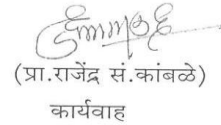 (प्रा.राजेंद्र सं.कांबळे)
कार्यवाह